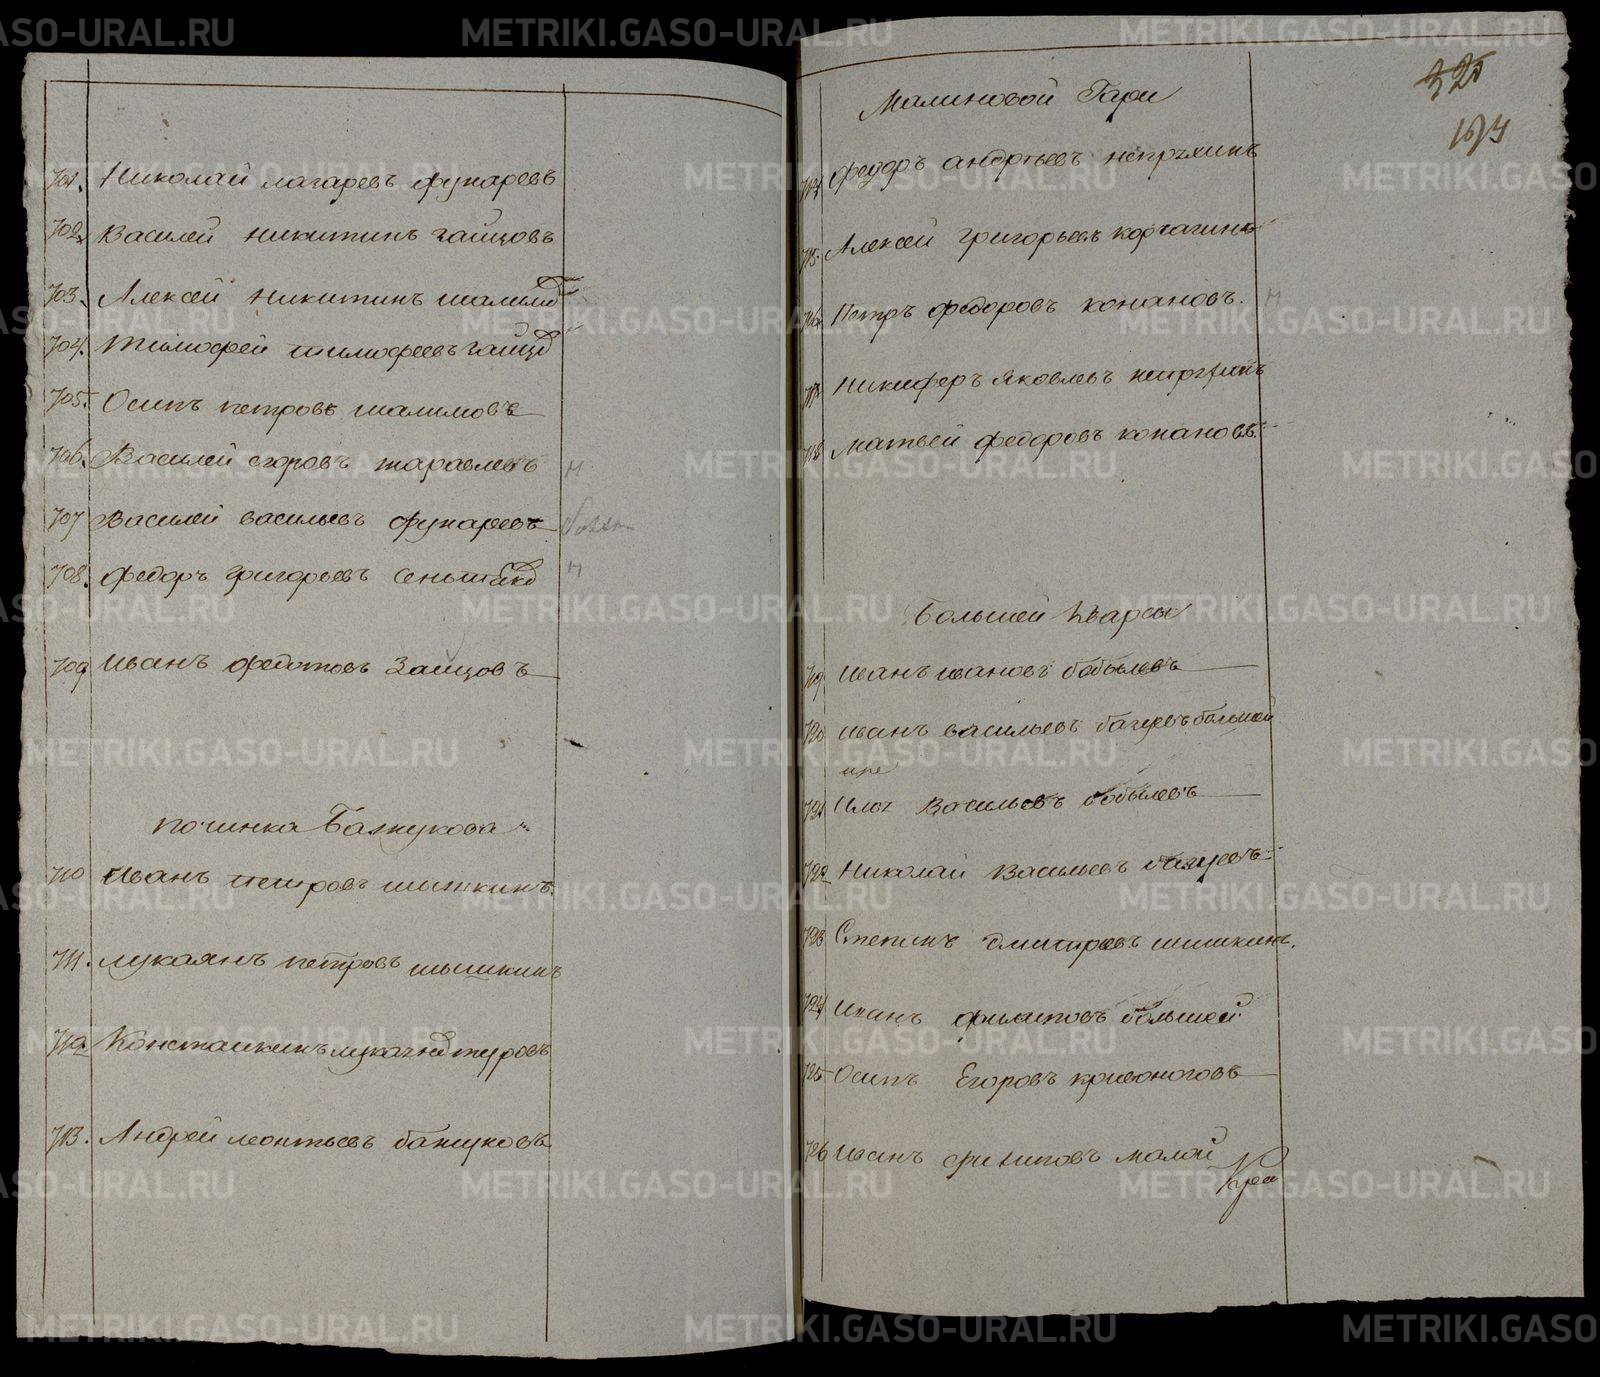 701. Николай лагаревъ фунаревъ
702. Василей никитинъ зайцовъ
703. Алексей никитинъ шалимо
704. Тимофей тимофеевъ зайцо
705. Осипъ петровъ шалимовъ
706. Василей егоровъ
707 Василей васильевъ фунаревъ
708. федоръ григорьевъ
709 иванъ федотовъ Зайцовъ
починка Бажукова
710 Иванъ петровъ шышкинъ
711. лукаянъ петровъ шышкинъ
712 Константинъ
713. Андрей леонтьевъ бажуковъ
325
Малиновой Гари
714 федоръ андреевъ непряхинъ
715. Алексей григорьевъ корчагинъ
716 Петръ федоровъ конановъ.
717 Никиферъ яковлевъ непряхинъ
718 матвей федоровъ конановъ.
Большей Кварсы
719 иванъ ивановъ бобылевъ
720 иванъ васильевъ большой
721 васильевъ бобылевъ
722 Николай васильевъ
723 Степанъ дмитреевъ шишкинъ.
724 иванъ филиповъ большей
725 Осипъ Егоровъ кривоноговъ
726 иванъ филиповъ малой
METRIKI.GASO-URAL.RU